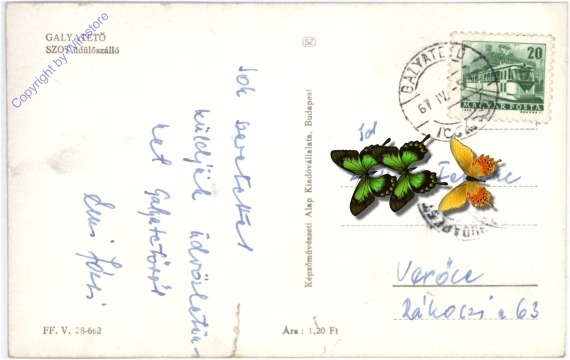 GALYATETŐ
SZOT üdülőszálló
Copyright by Wimstore
Sok szeretettel
küldjük üdvözletün-
ket Galyatetőről
FF. V. 28-662
Ára: 1,20 Ft
Képzőművészeti Alap Kiadóvállalata, Budapest
SZ
GALYATETŐ
67 IV.
20
MAGYAR POSTA
BUDAPEST
Verőce
Rákóczi u 63